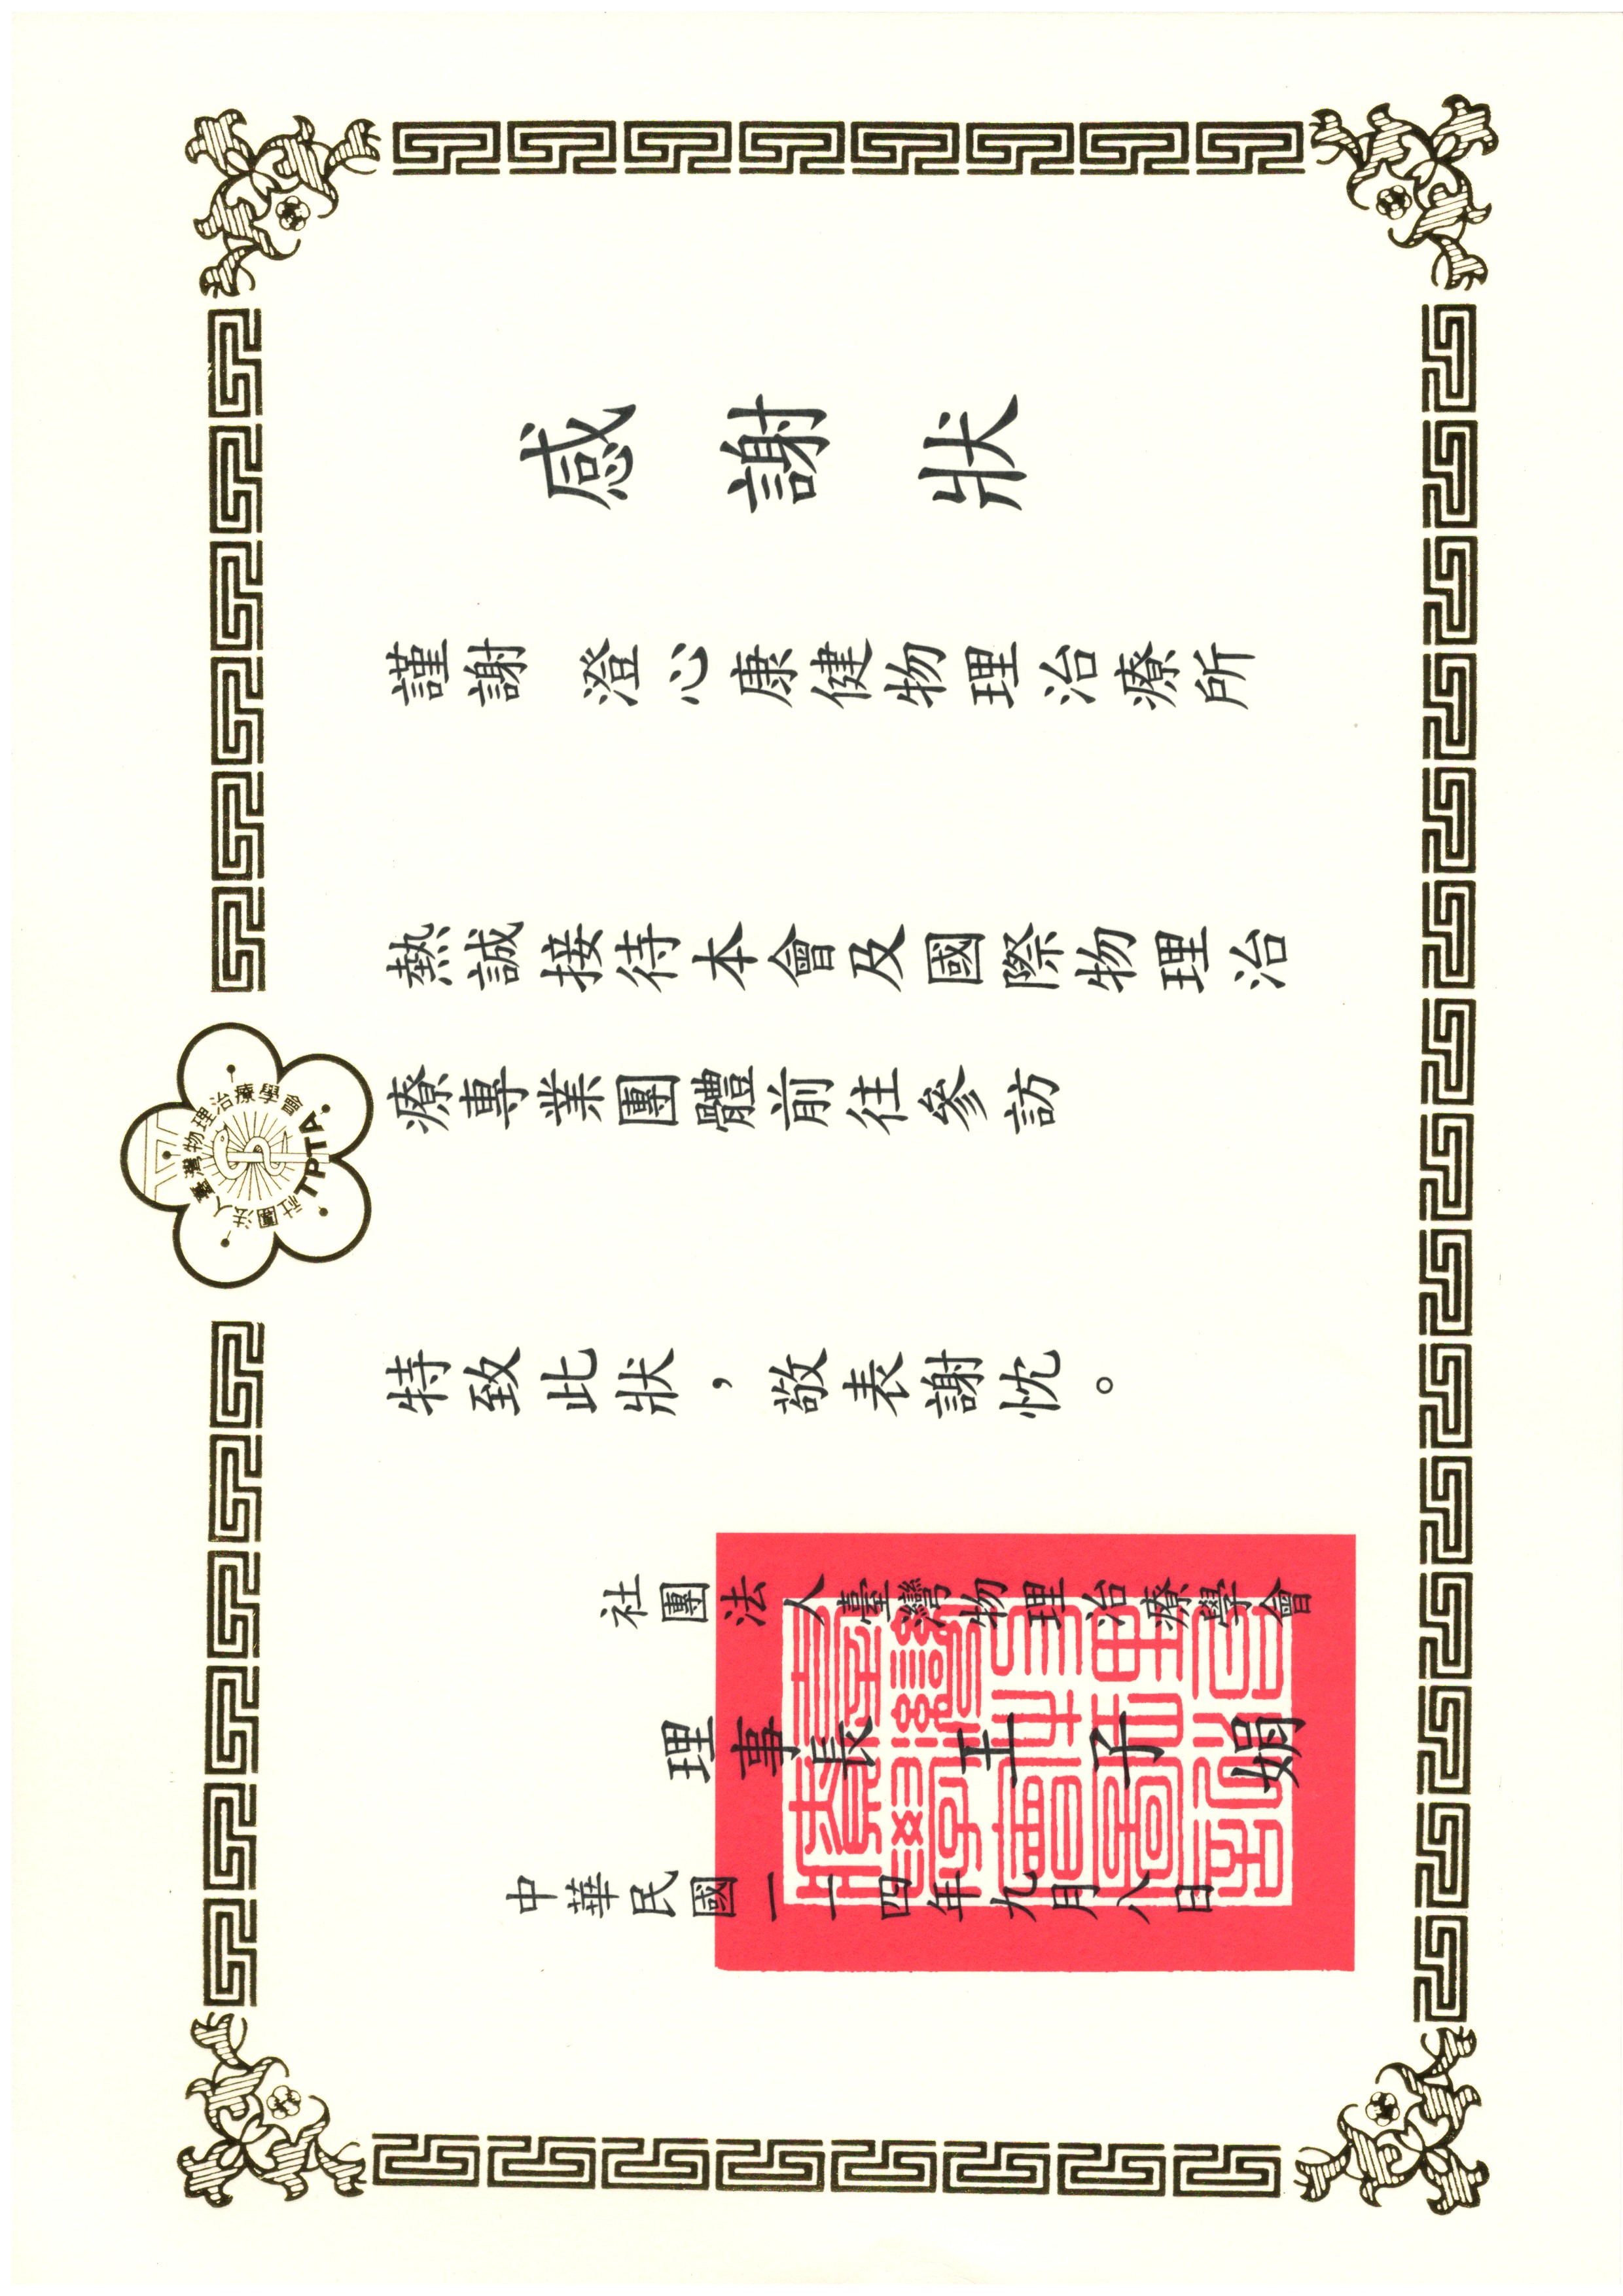 社團法人臺灣物理治療學會
TPTA
感謝狀
謹謝 澄心康健物理治療所
熱誠接待本會及國際物理治
療專業團體前往參訪
特致此狀，敬表謝忱。
社團法人臺灣物理治療學會
理事長 王子娟
中華民國一一四年九月八日